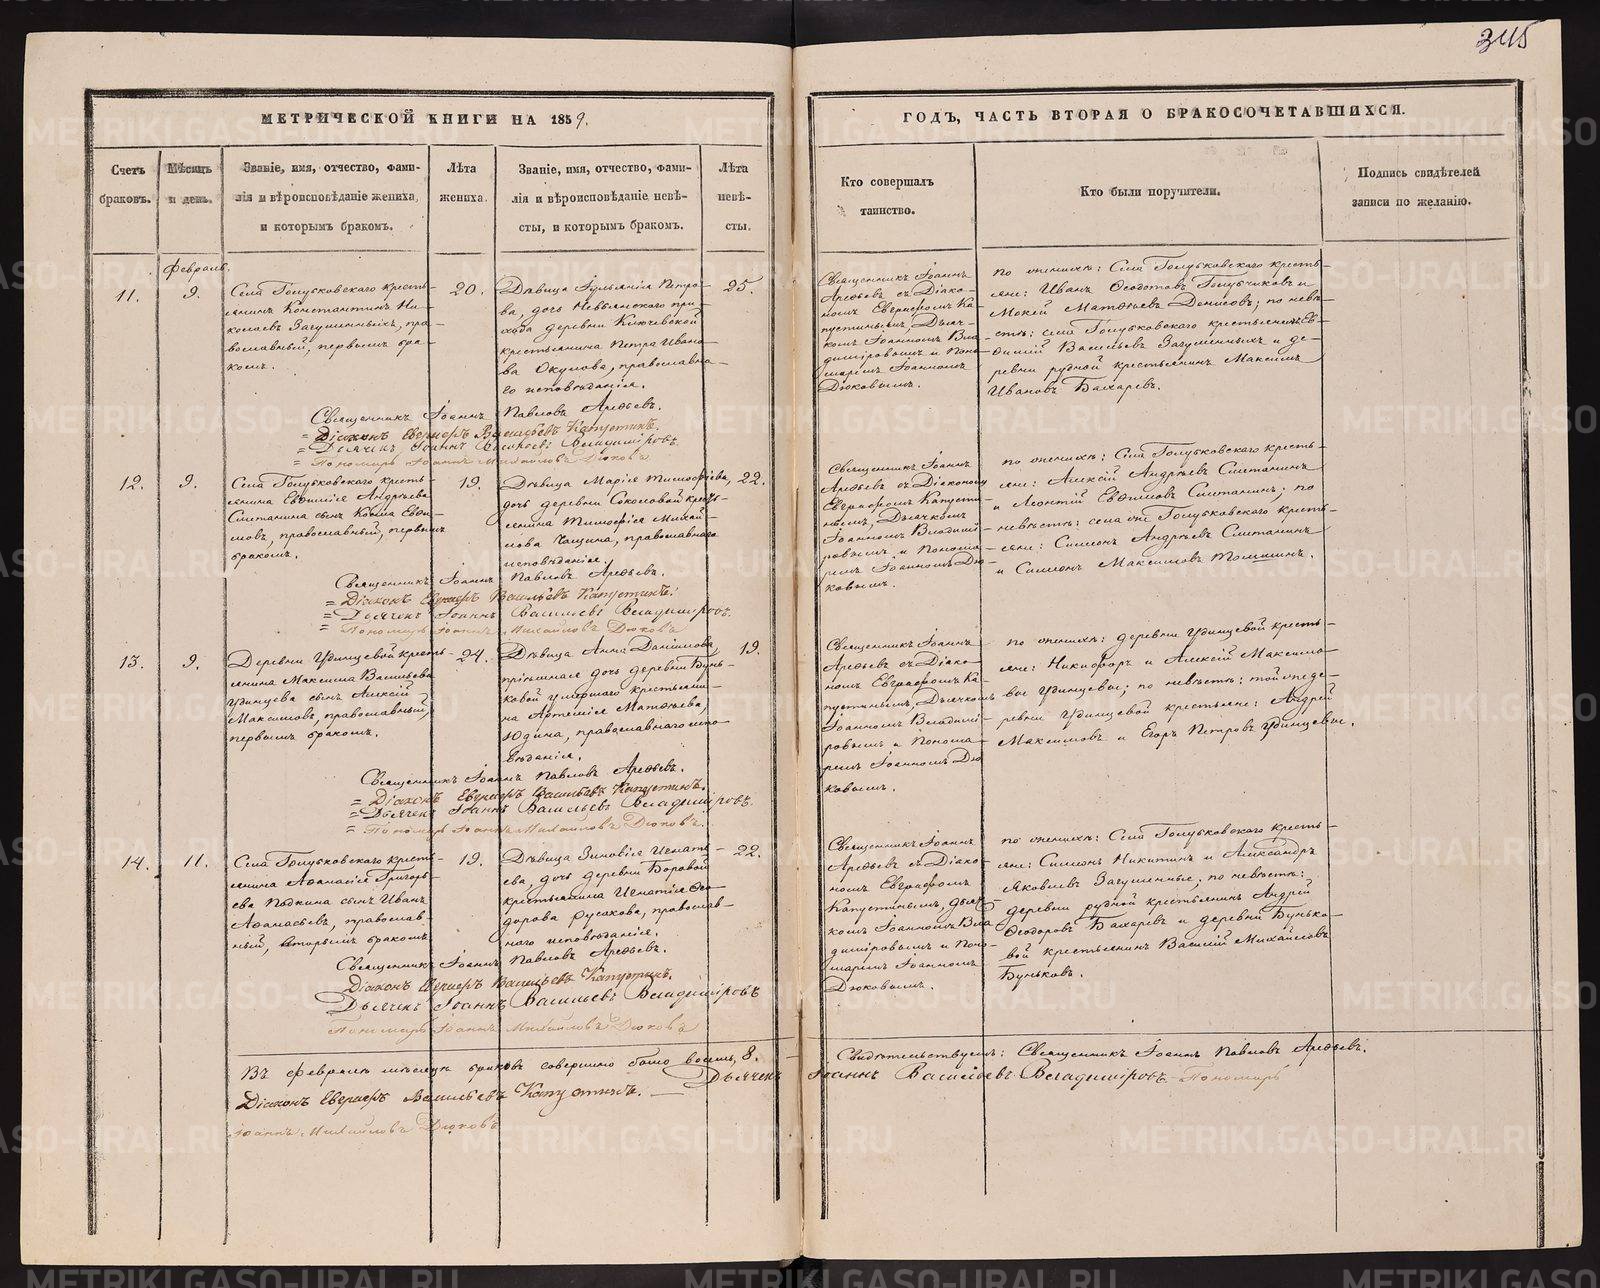 345
МЕТРИЧЕСКОЙ КНИГИ НА 1859.
ГОДЪ, ЧАСТЬ ВТОРАЯ О БРАКОСОЧЕТАВШИХСЯ.
Счетъ браковъ.
Мѣсяцъ и день.
Званіе, имя, отчество, фами-
лія и вѣроисповѣданіе жениха,
и которымъ бракомъ.
Лѣта
жениха.
Званіе, имя, отчество, фами-
лія и вѣроисповѣданіе невѣ-
сты, и которымъ бракомъ.
Лѣта
невѣ-
сты.
Кто совершалъ
таинство.
Кто были поручители.
Подпись свидѣтелей
записи по желанію.
Февраль.
11.
9.
Села Голубковскаго кресть-
янинъ Константинъ Ни-
колаевъ Загуменныхъ, пра-
вославный, первымъ бра-
комъ.
20.
Дѣвица Іуліанія Петро-
ва, дочь Невьянскаго при-
хода деревни Ключевской
крестьянина Петра Ивано-
ва Окулова, православна-
го исповѣданія.
25.
Священникъ Іоаннъ
Арефьевъ съ Діако-
номъ Евграфомъ Ка-
пустинымъ, Дьяч-
комъ Іоанномъ Вла-
диміровымъ и Поно-
маремъ Іоанномъ
Дюковымъ.
по женихѣ: Села Голубковскаго кресть-
яне: Иванъ Ѳедотовъ Голубчиковъ и
Мокей Матѳѣевъ Денисовъ; по невѣ-
стѣ: села Голубковскаго крестьянинъ Ев-
фимій Васильевъ Загуменныхъ и де-
ревни рудной крестьянинъ Максимъ
Ивановъ Бахаревъ.
Священникъ Іоаннъ Павловъ Арефьевъ.
= Діаконъ Евграфъ Васильевъ Капустинъ.
= Дьячекъ Іоаннъ Васильевъ Владиміровъ.
= Пономарь Іоаннъ Михайловъ Дюковъ
12.
9.
Села Голубковскаго кресть-
янина Евфимія Андреева
Сметанина сынъ Козма Евфи-
мовъ, православный, первымъ
бракомъ.
19.
Дѣвица Марія Тимофеева,
дочь деревни Соколовой кресть-
янина Тимофея Михай-
лова Чащина, православнаго
исповѣданія.
22.
Священникъ Іоаннъ
Арефьевъ съ Діакономъ
Евграфомъ Капусти-
нымъ, Дьячкомъ
Іоанномъ Владимі-
ровымъ и Понома-
ремъ Іоанномъ Дю-
ковымъ.
по женихѣ: Села Голубковскаго кресть-
яне: Алексѣй Андреевъ Сметанинъ
и Леонтій Евфимовъ Сметанинъ; по
невѣстѣ: села же Голубковскаго кресть-
яне: Симеонъ Андреевъ Сметанинъ
и Симеонъ Максимовъ Томшинъ.
Священникъ Іоаннъ Павловъ Арефьевъ.
= Діаконъ Евграфъ Васильевъ Капустинъ.
= Дьячекъ Іоаннъ Васильевъ Владиміровъ.
= Пономарь Іоаннъ Михайловъ Дюковъ
13.
9.
Деревни Удинцевой кресть-
янина Максима Васильева
Удинцева сынъ Алексѣй
Максимовъ, православный,
первымъ бракомъ.
24.
Дѣвица Анна Данилова,
пріемная дочь деревни Бунь-
ковой умершаго крестьяни-
на Артемія Матѳѣева
Юдина, православнаго испо-
вѣданія.
19.
Священникъ Іоаннъ
Арефьевъ съ Діако-
номъ Евграфомъ Ка-
пустинымъ, Дьячкомъ
Іоанномъ Владимі-
ровымъ и Понома-
ремъ Іоанномъ Дю-
ковымъ.
по женихѣ: деревни Удинцевой кресть-
яне: Никифоръ и Алексѣй Максимо-
вы Удинцевы; по невѣстѣ: той же де-
ревни Удинцевой крестьяне: Андрей
Максимовъ и Егоръ Петровъ Удинцевы.
Священникъ Іоаннъ Павловъ Арефьевъ.
= Діаконъ Евграфъ Васильевъ Капустинъ.
= Дьячекъ Іоаннъ Васильевъ Владиміровъ.
= Пономарь Іоаннъ Михайловъ Дюковъ.
14.
11.
Села Голубковскаго кресть-
янина Аѳанасія Григорь-
ева Пѣдкина сынъ Иванъ
Аѳанасьевъ, православ-
ный, вторымъ бракомъ
19.
Дѣвица Зиновія Игнать-
ева, дочь деревни Боровой
крестьянина Игнатія Ѳео-
дорова Русакова, православ-
наго исповѣданія.
22.
Священникъ Іоаннъ
Арефьевъ съ Діако-
номъ Евграфомъ
Капустинымъ, дьяч-
комъ Іоанномъ Вла-
диміровымъ и Поно-
маремъ Іоанномъ
Дюковымъ.
по женихѣ: Села Голубковскаго кресть-
яне: Симеонъ Никитинъ и Александръ
Яковлевъ Загуменные; по невѣстѣ:
деревни рудной крестьянинъ Андрей
Ѳеодоровъ Бахаревъ и деревни Бунько-
вой крестьянинъ Василій Михайловъ
Буньковъ.
Священникъ Іоаннъ Павловъ Арефьевъ.
Діаконъ Евграфъ Васильевъ Капустинъ.
Дьячекъ Іоаннъ Васильевъ Владиміровъ
Пономарь Іоаннъ Михайловъ Дюковъ
Въ февралѣ мѣсяцѣ браковъ совершено было восемь, 8. — Свидѣтельствуемъ: Священникъ Іоаннъ Павловъ Арефьевъ.
Діаконъ Евграфъ Васильевъ Капустинъ. — Дьячекъ Іоаннъ Васильевъ Владиміровъ - Пономарь
Іоаннъ Михайловъ Дюковъ
METRIKI.GASO-URAL.RU